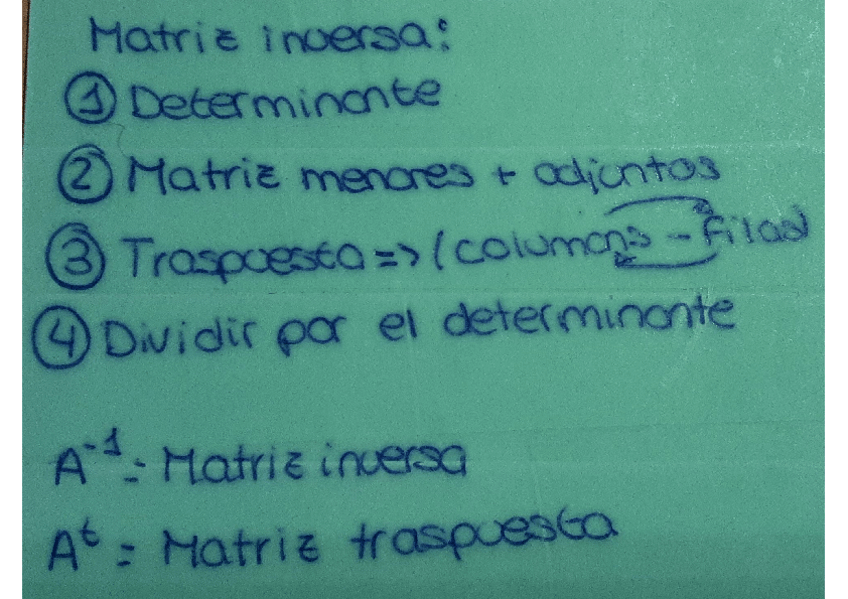 Matriz inversa:
① Determinante
② Matriz menores + adjuntos
③ Traspuesta => (columnas - filas)
④ Dividir por el determinante
A⁻¹ = Matriz inversa
Aᵗ = Matriz traspuesta